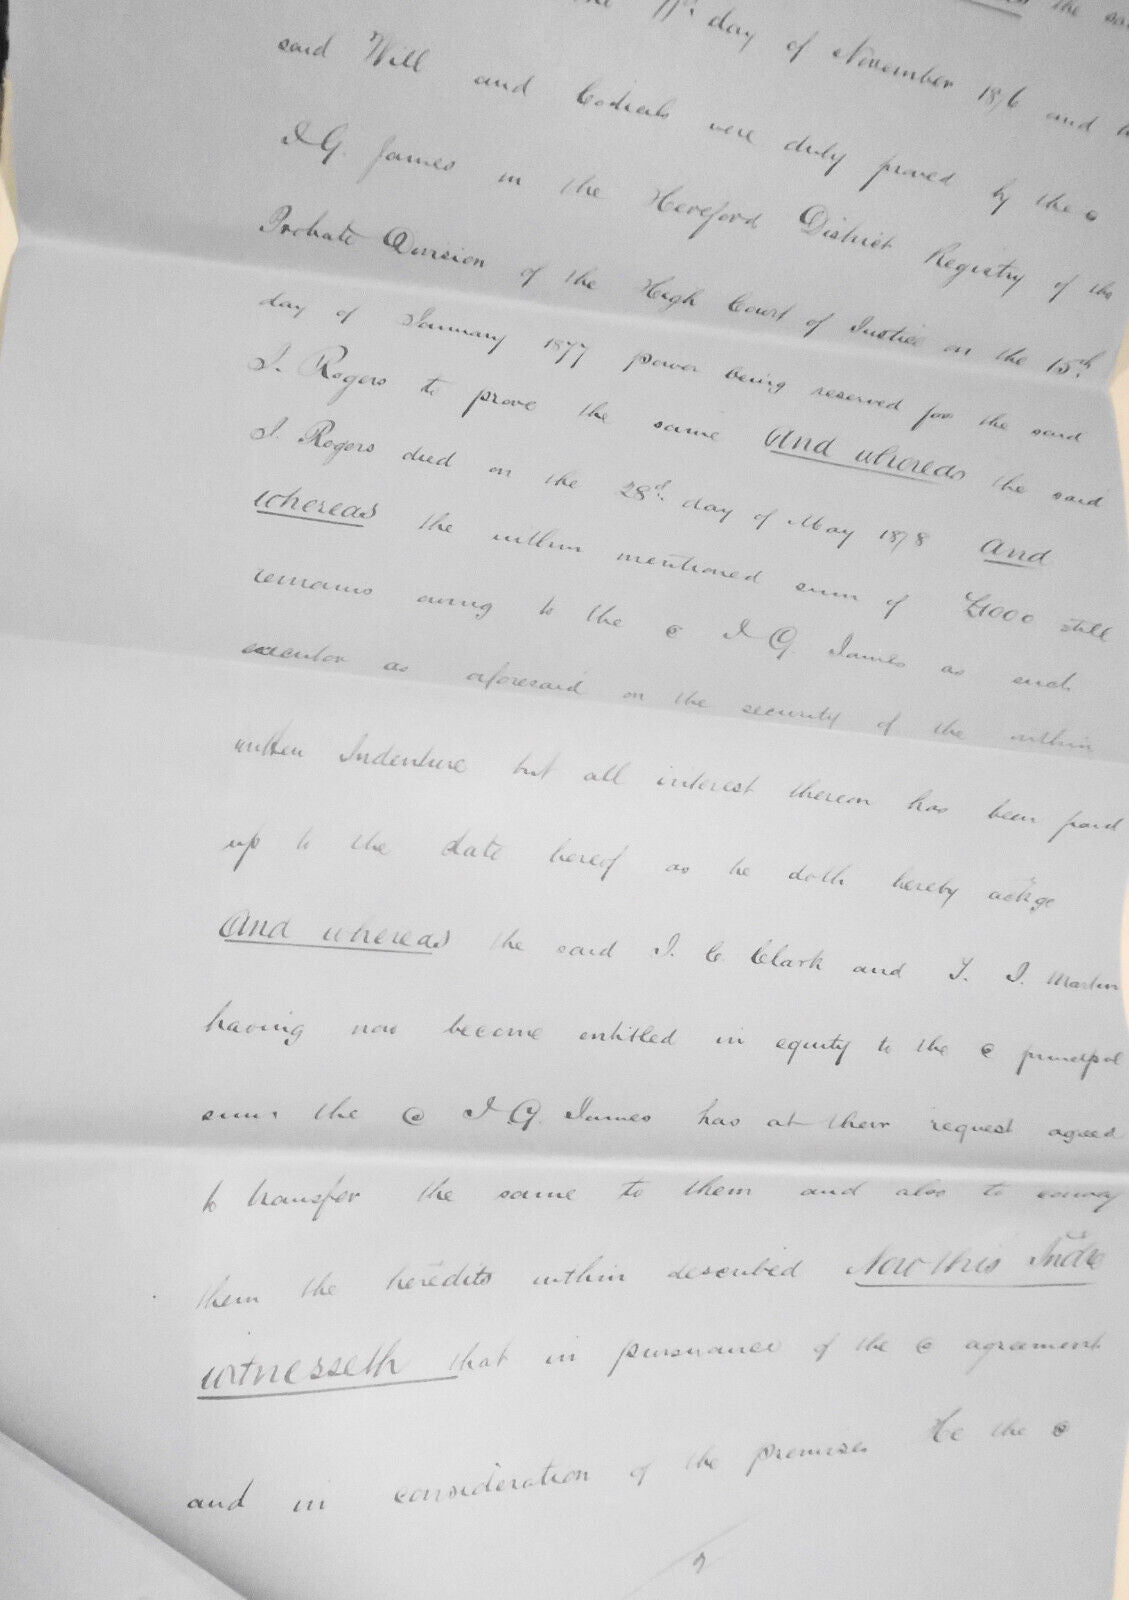 the said
the 11th day of November 1876 and the
said Will and Codicils were duly proved by the s
J G. James in the Hereford District Registry of the
Probate Division of the High Court of Justice on the 15th
day of January 1877 power being reserved for the said
J. Rogers to prove the same And whereas the said
J. Rogers died on the 28th day of May 1878 And
whereas the within mentioned sum of £1000 still
remains owing to the s J G. James as such
executor as aforesaid on the security of the within
written Indenture but all interest thereon has been paid
up to the date hereof as he doth hereby ackge
And whereas the said J. C. Clark and T. J. Martin
having now become entitled in equity to the s principal
sum the s J G. James has at their request agreed
to transfer the same to them and also to convey
them the heredits within described Now this Indre
witnesseth that in pursuance of the s agrement
and in consideration of the premises He the s